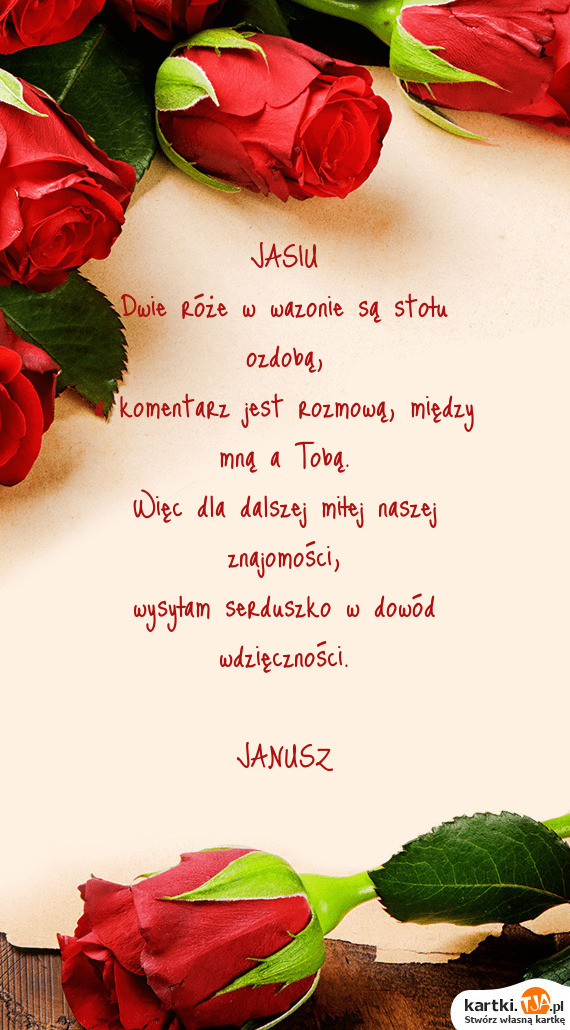 JASIU
Dwie róże w wazonie są stołu
ozdobą,
a komentarz jest rozmową, między
mną a Tobą.
Więc dla dalszej miłej naszej
znajomości,
wysyłam serduszko w dowód
wdzięczności.
JANUSZ
kartki.TJA.pl
Stwórz własną kartkę